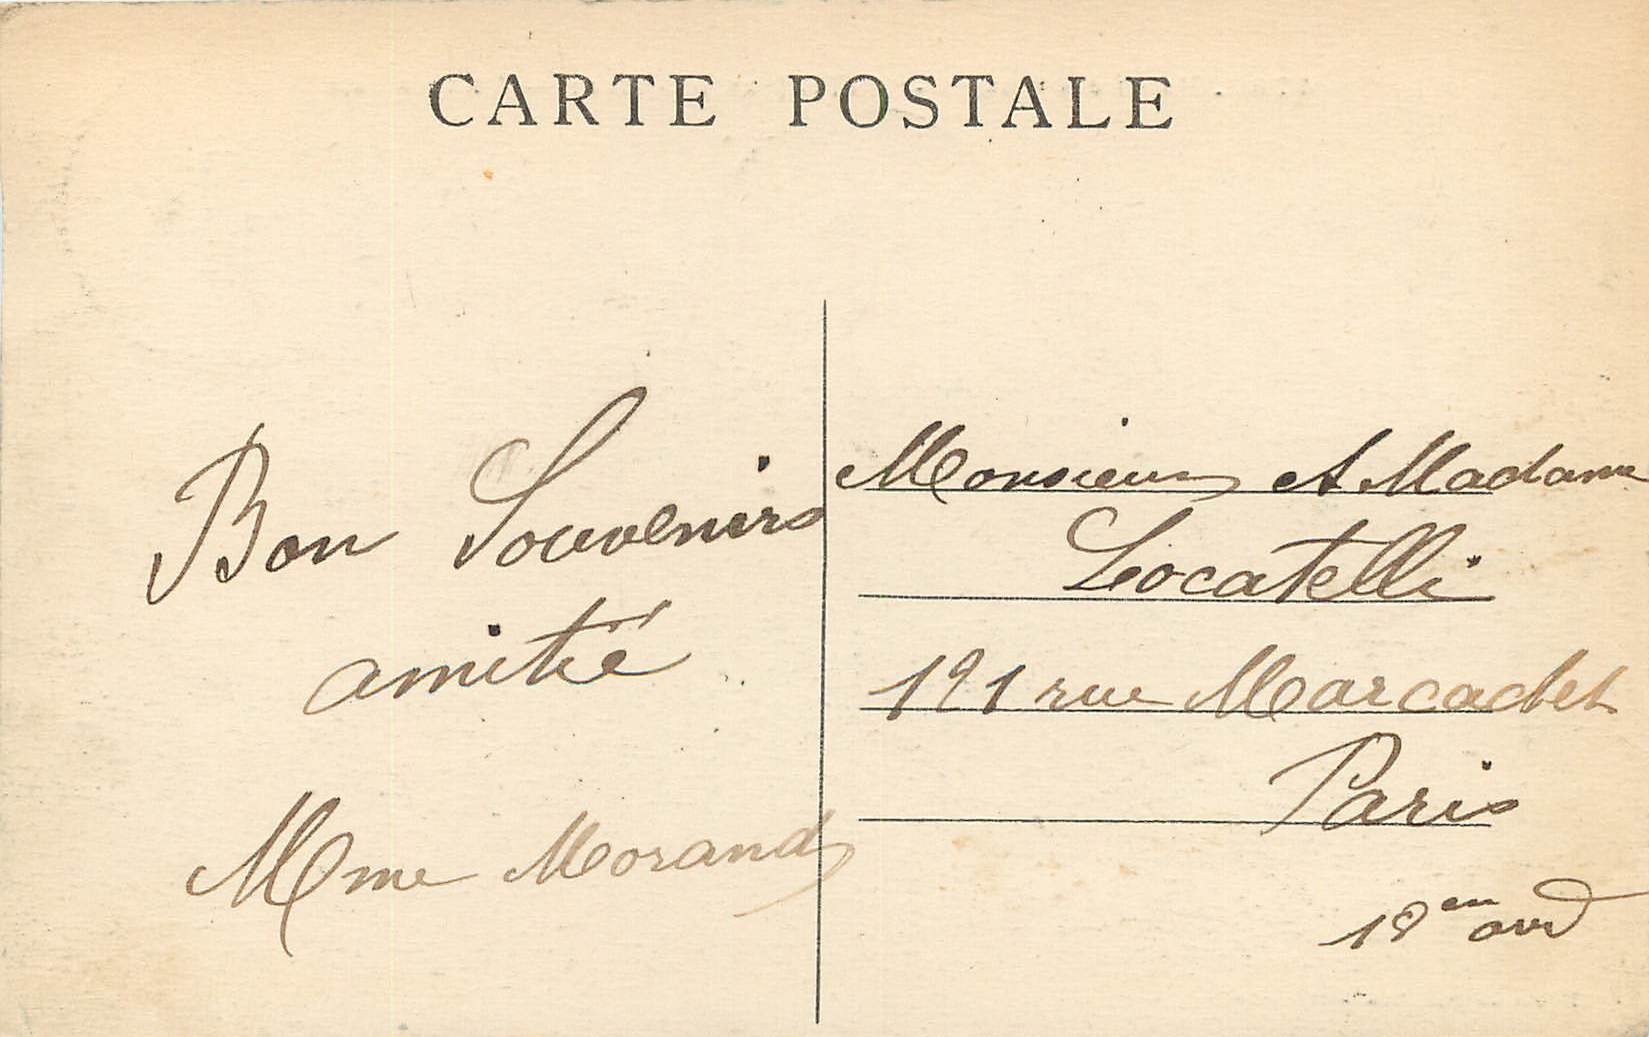 CARTE POSTALE
Bon Souvenirs
amitié
Mme Morand
Monsieur et Madame
Locatelli
191 rue Marcadet
Paris
18em arrd